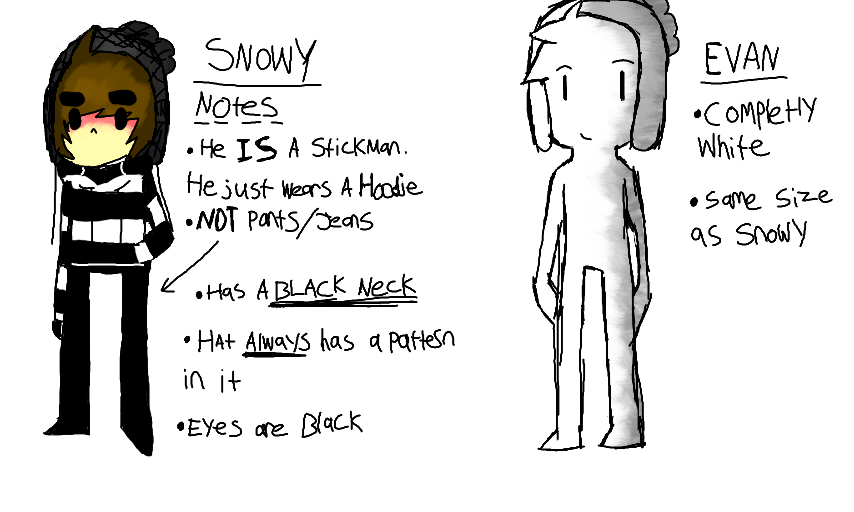 SNOWY
Notes
• He IS A Stickman.
He just wears A Hoodie
• NOT Pants/Jeans
• Has A BLACK Neck
• HAt Always has a pattern
in it
• EYes are Black
EVAN
• COMPletlY
White
• Same Size
as Snowy